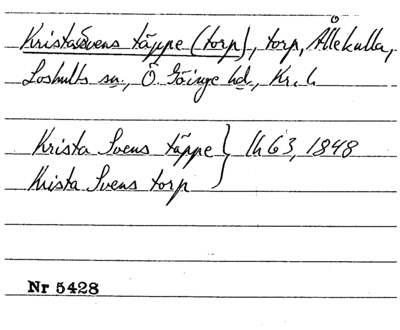 Krista Svens täppe (torp), torp, Ållekulla,
Loshults sn., Ö. Göinge hd., Kr. l.
Krista Svens täppe } lk 63, 1848
Krista Svens torp
Nr 5428